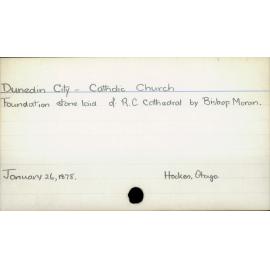 Dunedin City - Catholic Church
Foundation stone laid of R.C Cathedral by Bishop Moran.
January 26, 1878.
Hocken, Otago